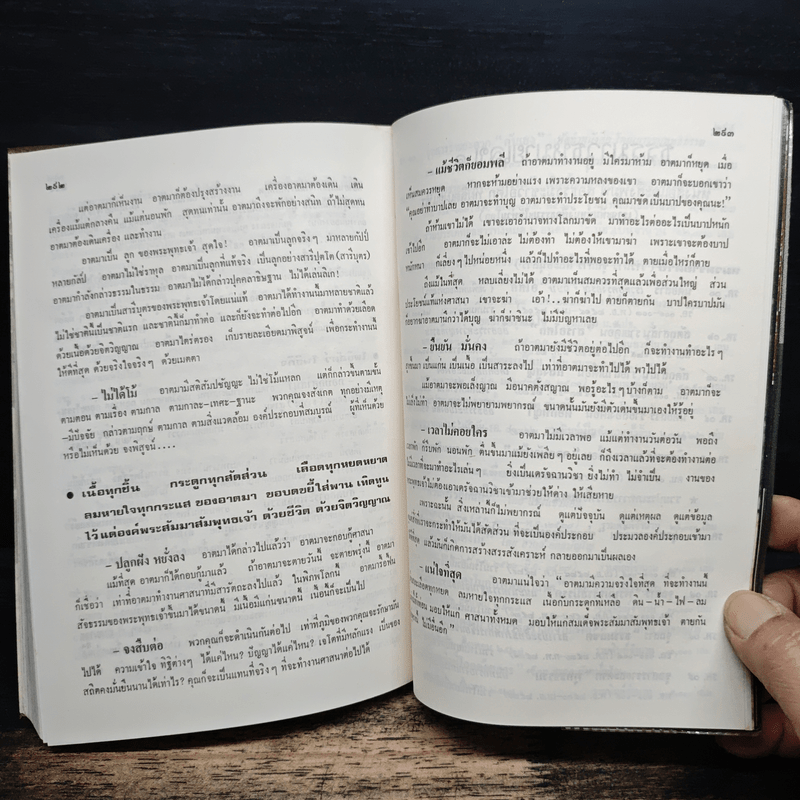 ๒๙๒
แต่อาตมาก็เห็นงาน อาตมาก็ต้องปรุงสร้างงาน เครื่องอาตมาต้องเดิน เดิน
เครื่องแม้แต่กลางคืน แม้แต่นอนพัก สุดทนเท่านั้น อาตมาถึงจะพักอย่างสนิท ถ้าไม่สุดทน
อาตมาต้องเดินเครื่อง และทำงาน
อาตมาเป็น ลูก ของพระพุทธเจ้า สุดใจ! อาตมาเป็นลูกจริงๆ มาหลายกัปป์
หลายกัลป์ อาตมาไม่ใช่ราหุล อาตมาเป็นลูกที่แท้จริง เป็นลูกอย่างสารีปุตโต (สารีบุตร)
อาตมากำลังกล่าวธรรมในธรรม อาตมาไม่ได้กล่าวปุคคลาธิษฐาน ไม่ได้เล่นลิเก!
อาตมาเป็นสารีบุตรของพระพุทธเจ้าโดยแน่แท้ อาตมาได้ทำงานนี้มาหลายชาติแล้ว
ไม่ใช่ชาตินี้เป็นชาติแรก และชาตินี้ก็มาทำต่อ และก็ยังจะทำต่อไปอีก อาตมาทำด้วยเลือด
ด้วยเนื้อด้วยจิตวิญญาณ อาตมาไตร่ตรอง เก็บรายละเอียดมาพิสูจน์ เพื่อกระทำงานนี้
ให้ดีที่สุด ด้วยจริงใจจริงๆ ด้วยเมตตา
– ไม่ได้โม้ อาตมามีสติสัมปชัญญะ ไม่ใช่โม้แหลก แต่ก็กล่าวขึ้นตามขั้น
ตามตอน ตามเรื่อง ตามกาล ตามกาละ-เทศะ-ฐานะ พวกคุณจงสังเกต ทุกอย่างมีเหตุ
-มีปัจจัย กล่าวตามฤกษ์ ตามกาล ตามสิ่งแวดล้อม องค์ประกอบที่สมบูรณ์ ผู้ที่เห็นด้วย
หรือไม่เห็นด้วย จงพิสูจน์....
● เนื้อทุกชิ้น กระดูกทุกสัดส่วน เลือดทุกหยดหยาด
ลมหายใจทุกกระแส ของอาตมา ขอบดขยี้ใส่พาน เทิดทูน
ไว้ แด่องค์พระสัมมาสัมพุทธเจ้า ด้วยชีวิต ด้วยจิตวิญญาณ
– ปลูกฝัง หยั่งลง อาตมาได้กล่าวไปแล้วว่า อาตมาจะกอบกู้ศาสนา
แม้ที่สุด อาตมาได้กอบกู้มาแล้ว ถ้าอาตมาจะตายวันนี้ จะตายพรุ่งนี้ อาตมา
ก็เชื่อว่า เท่าที่อาตมาทำงานศาสนาที่มีสารัตถะลงไปแล้ว ในพิภพโลกนี้ อาตมารื้อฟื้น
สัจะธรรมของพระพุทธเจ้าขึ้นมาได้ขนาดนี้ มีเนื้อมีแก่นขนาดนี้ เนื้อนี้ก็จะเป็นไป
– จงสืบต่อ พวกคุณก็จะดำเนินกันต่อไป เท่าที่ภูมิของพวกคุณจะรักษามัน
ไปได้ ความเข้าใจ ทิฐิต่างๆ ได้แค่ไหน? ปัญญาได้แค่ไหน? เจโตที่มีหลักแรง เป็นของ
สถิตคงมั่นยืนนานได้เท่าไร? คุณก็จะเป็นแทนที่จริงๆ ที่จะทำงานศาสนาต่อไปได้
๒๙๓
– แม้ชีวิตก็ยอมพลี ถ้าอาตมาทำงานอยู่ มีใครมาห้าม อาตมาก็หยุด เมื่อ
เห็นสมควรหยุด หากจะห้ามอย่างแรง เพราะความหลงของเขา อาตมาก็จะบอกเขาว่า
"คุณอย่าทำบาปเลย อาตมาจะทำบุญ อาตมาจะทำประโยชน์ คุณมาขัด เป็นบาปของคุณนะ!"
ถ้าห้ามเขาไม่ได้ เขาจะเอาอำนาจทางโลกมาขัด มาทำอะไรต่ออะไรเป็นบาปหนัก
เข้าไปอีก อาตมาก็จะไม่เอาล่ะ ไม่ต้องทำ ไม่ต้องให้เขามาฆ่า เพราะเขาจะต้องบาป
หนักหนา ก็เลี่ยงๆ ไปหน่อยหนึ่ง แล้วก็ไปทำอะไรที่พอจะทำได้ ตายเมื่อไหร่ก็ตาย
ถึงแม้ในที่สุด หลบเลี่ยงไม่ได้ อาตมาจะเห็นสมควรที่สุดแล้วเพื่อส่วนใหญ่ ส่วน
ประโยชน์แท้แห่งศาสนา เขาจะฆ่า เอ้า!.. ฆ่าก็ฆ่าไป ตายก็ตายกัน บาปใครบาปมัน
อยากฆ่าอาตมานึกว่าได้บุญ ฆ่าก็ฆ่าซินะ ไม่มีปัญหาเลย
– ยืนยัน มั่นคง ถ้าอาตมายังมีชีวิตอยู่ต่อไปอีก ก็จะทำงานทำอะไรๆ
เป็นแก่น เป็นเนื้อ เป็นสาระลงไป เท่าที่อาตมาจะทำไปได้ พาไปได้
แม้อาตมาจะพอลงญาณ มีอนาคตังสญาณ พอรู้อะไรๆ บ้างก็ตาม อาตมาก็จะ
ไม่ทำ อาตมาจะไม่พยายามพยากรณ์ ขนาดนั้นมันยังมีตัวเด่นขึ้นมาเองให้รู้อยู่
– เวลาไม่คอยใคร อาตมาไม่มีเวลาพอ แม้แต่ทำงานวันต่อวัน พอถึง
เวลาพัก ก็รีบพัก นอนพัก ตื่นขึ้นมาแม้ยังเพลียๆ อยู่เลย ก็ถึงเวลาแล้วที่จะต้องทำงานต่อ
ไม่มีเวลาที่จะมาทำอะไรเล่นๆ ยิ่งเป็นเดรัจฉานวิชา ยิ่งไม่ทำ ไม่จำเป็น งานของ
ไม่ต้องเอาเดรัจฉานวิชาเข้ามาช่วยให้ต่าง ให้เสียหาย
เพราะฉะนั้น สิ่งเหล่านี้ก็ไม่พยากรณ์ ดูแต่ปัจจุบัน ดูแต่เหตุผล ดูแต่ข้อมูล
จะกระทำให้มันได้สัดส่วน ที่จะเป็นองค์ประกอบ ประมวลองค์ประกอบเข้ามา
แล้วมันก็เกิดการสร้างสรรสังเคราะห์ กลายออกมาเป็นผลเอง
– แน่ใจที่สุด อาตมาแน่ใจว่า "อาตมามีความจริงใจที่สุด ที่จะทำงานนี้
เลือดทุกหยด ลมหายใจทุกกระแส เนื้อกับกระดูกที่เหลือ ดิน–น้ำ–ไฟ–ลม
มอบให้แก่ ศาสนาทั้งหมด มอบให้แก่สมเด็จพระสัมมาสัมพุทธเจ้า ตายกัน
ไม่มีอื่นอีก"